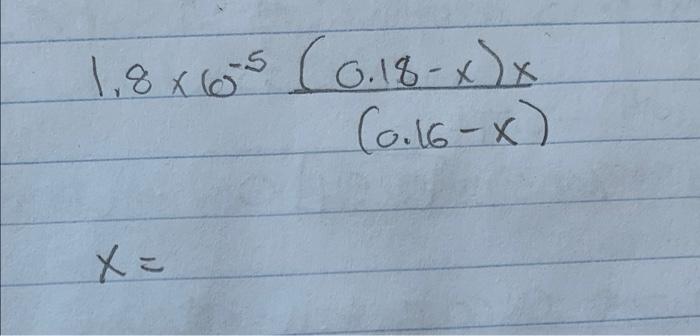 1.8 x 10^-5 (0.18 - x) x
(0.16 - x)
x =